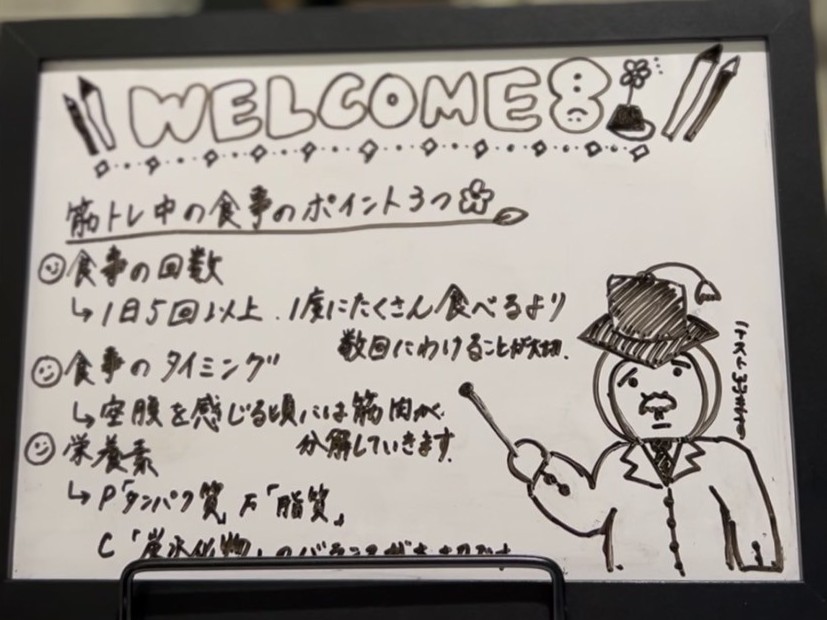 WELCOME
筋トレ中の食事のポイント3つ
食事の回数
↳ 1日5回以上. 1度にたくさん食べるより
数回にわけることが大切.
食事のタイミング
↳ 空腹を感じる頃には筋肉が
分解していきます.
栄養素
↳ P「タンパク質」F「脂質」
C「炭水化物」のバランスが大切です